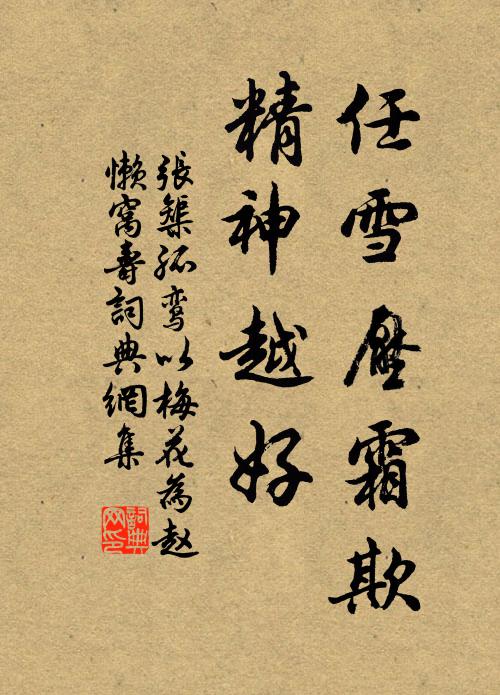 任雪壓霜欺
精神越好
張榘孤鸾以梅花為赵
懒窝壽詞典網集
詞典网印